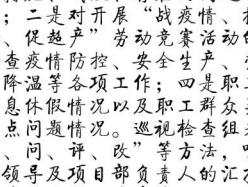 ；二是对开展“战疫情、
、促超产”劳动竞赛活动
查疫情防控、安全生产、
降温等各项工作；四是职
息休假情况以及职工群众
点问题情况。巡视检查组
、问、评、改”等方法，
领导及项目部负责人的汇